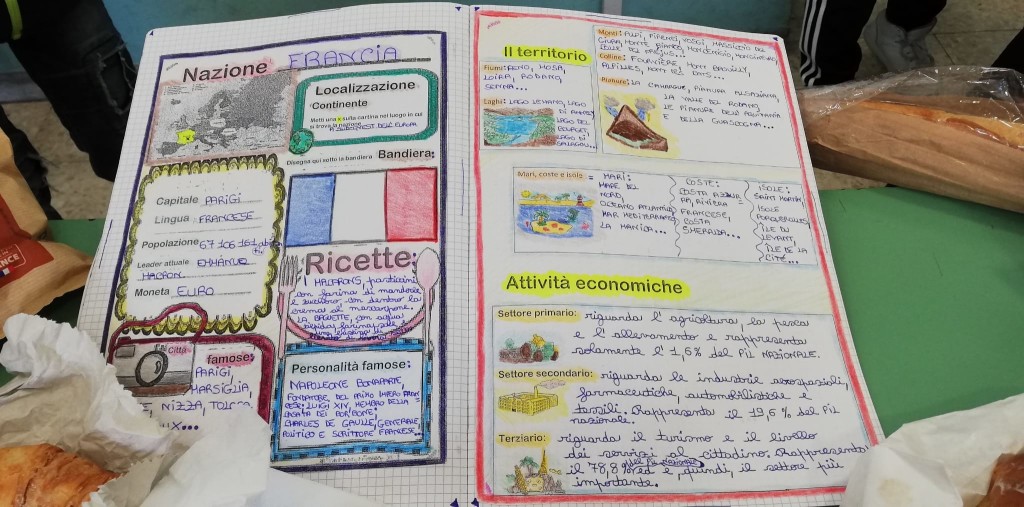 Nazione FRANCIA
Localizzazione
Continente
Metti una x sulla cartina nel luogo in cui
si trova la nazione
A SUD OVEST DELL'EUROPA
Disegna qui sotto la bandiera Bandiera:
Capitale PARIGI
Lingua FRANCESE
Popolazione 67 106 161 abitanti
Leader attuale EMMANUEL
MACRON
Moneta EURO
Ricette:
I MACARONS, pasticcini
con farina di mandorle
e zucchero, con dentro la
crema al mascarpone.
LA BAGUETTE, con acqua
Città famose:
PARIGI,
MARSIGLIA,
NIZZA,
Personalità famose:
NAPOLEONE BONAPARTE,
FONDATORE DEL PRIMO IMPERO FRAN
CESE; LUIGI XIV, MEMBRO DELLA
CASATA DEI BORBONE;
CHARLES DE GAULLE, GENERALE,
POLITICO E SCRITTORE FRANCESE...
Il territorio
Fiumi: RENO, MOSA,
LOIRA, RODANO,
SENNA...
Laghi: LAGO LEMANO, LAGO
LAGO DEL
BOURGET,
LAGO DI
Monti: ALPI, PIRENEI, VOSGI, MASSICCIO DEL
GIURA, MONTE BIANCO, MONCENISIO, MONGINEVRO,
COLLE DEL FREJUS...
Colline: FOURVIÈRE, MONT
ALPILLES, MONT DES CATS...
Pianure: LA CAMARGUE, PIANURA ALSAZIANA,
LA VALLE DEL RODANO,
LE PIANURE DELL'AQUITANIA
E DELLA GUASCOGNA...
Mari, coste e isole =
MARI:
MARE DEL
NORD,
OCEANO ATLANTICO,
MAR MEDITERRANEO,
LA MANICA...
COSTE:
COSTA AZZUR
RA, RIVIERA
FRANCESE,
COSTA
SMERALDA...
ISOLE:
SAINT HONORAT,
ISOLE
PORQUEROLLES
ÎLE DU
LEVANT,
ÎLE DE LA
CITÉ...
Attività economiche
Settore primario: riguarda l'agricoltura, la pesca
e l'allevamento e rappresenta
solamente l'1,6% del PIL NAZIONALE.
Settore secondario: riguarda le industrie aerospaziali,
farmaceutiche, automobilistiche e
tessili. Rappresenta il 19,6% del PIL
nazionale.
Terziario: riguarda il turismo e il livello
dei servizi al cittadino. Rappresenta
il 78,8% del PIL nazionale ed è, quindi, il settore più
importante.